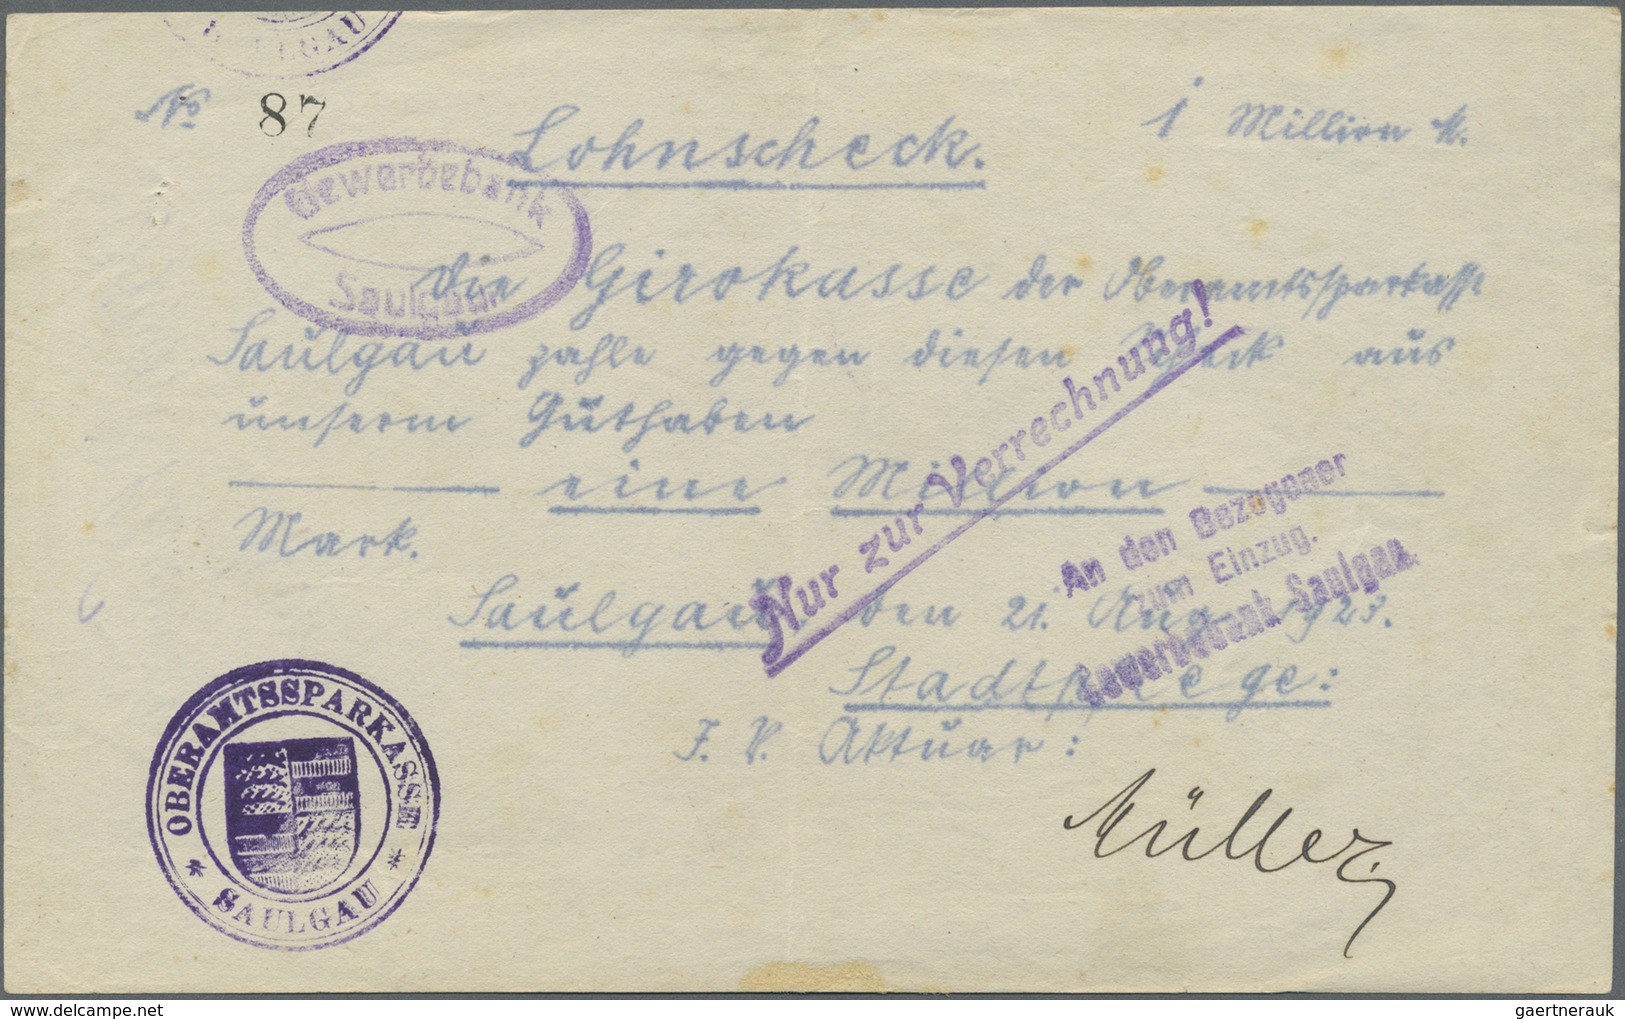 SAULGAU
No 87
Lohnscheck.
1 Million M.
Gewerbebank
Saulgau
Die Girokasse der Oberamtssparkasse
Saulgau zahle gegen diesen Scheck aus
unserm Guthaben
eine Million
Mark.
Nur zur Verrechnung!
An den Bezogener
zum Einzug.
Gewerbebank Saulgau
Saulgau, den 21. Aug. 1923.
Stadtpflege:
J. V. Aktuar:
Müller
OBERAMTSSPARKASSE
* SAULGAU *
gaertnerauk